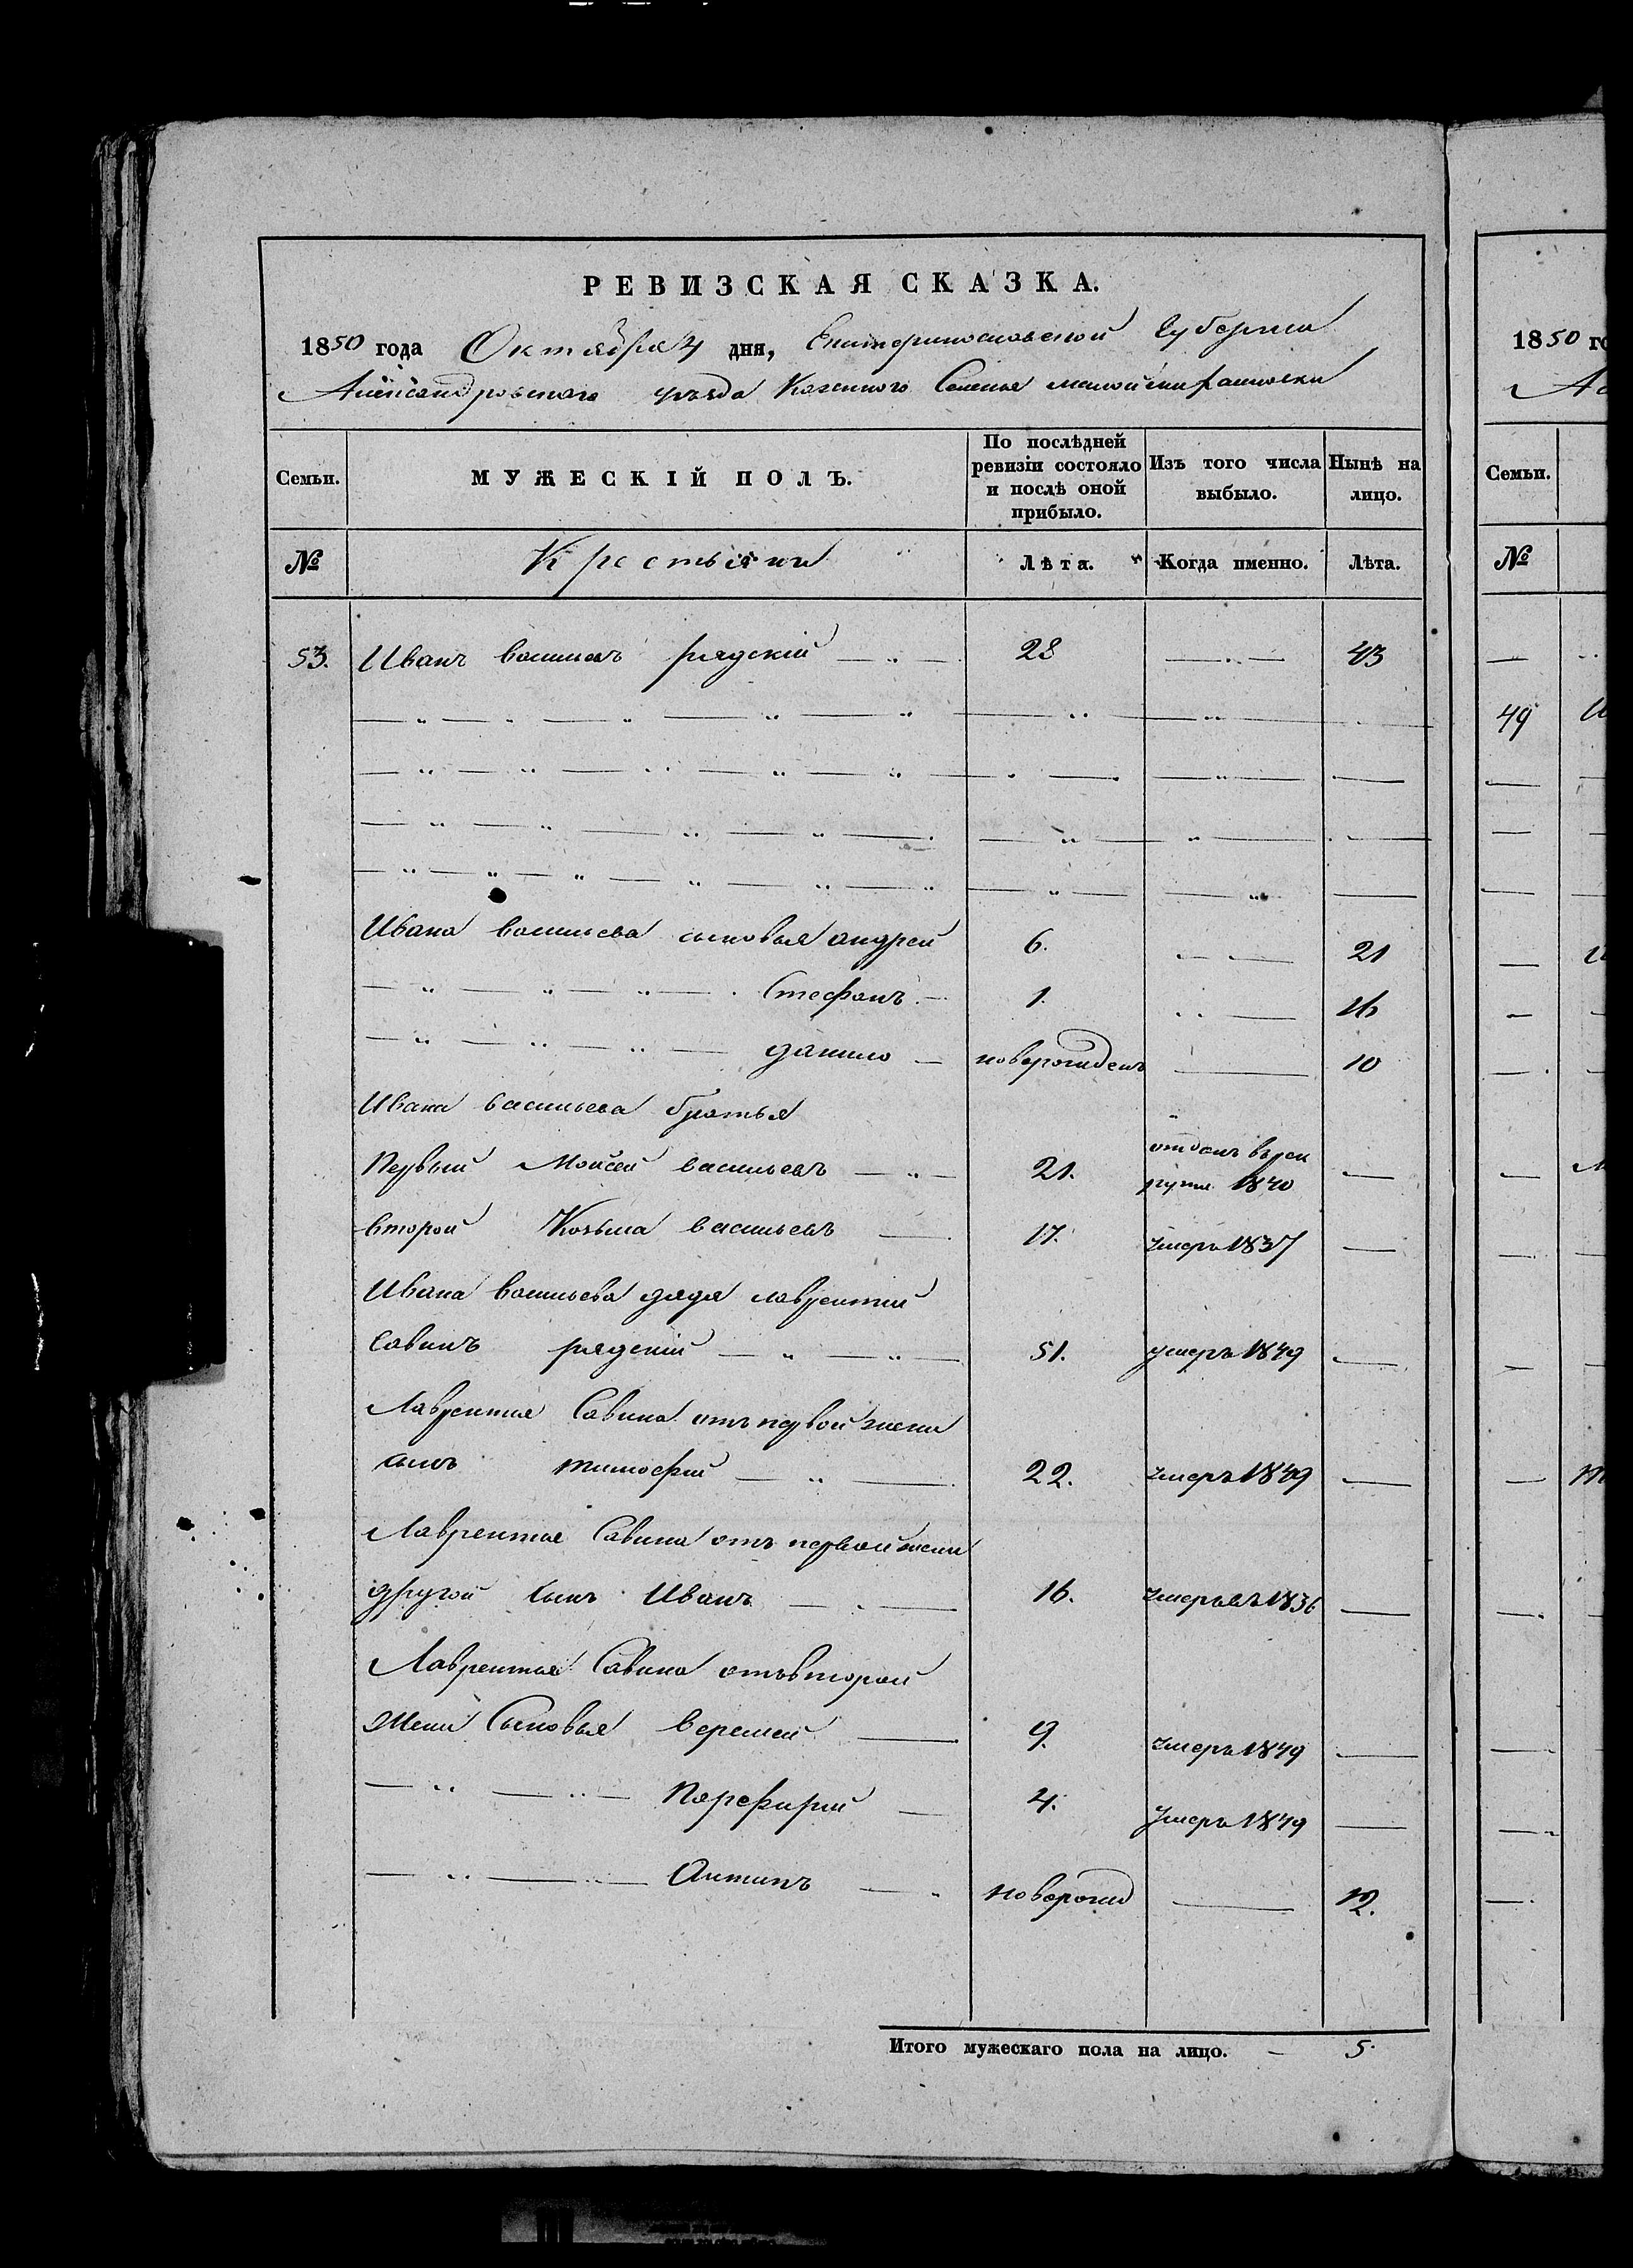 РЕВИЗСКАЯ СКАЗКА.
1850 года Октября 4 дня, Екатеринославской Губернии
Александровского уезда Казенного Селенья
Семьи. МУЖЕСКІЙ ПОЛЪ. По послѣдней ревизіи состояло и послѣ оной прибыло. Изъ того числа выбыло. Нынѣ на лицо.
№ Крестьяни Лѣта. Когда именно. Лѣта.
53. Иванъ васильевъ рядскій 28 43
Ивана васильева сыновья андрей 6. 21
Стефанъ 1. 16
данило новорожденъ 10
Ивана васильева братья
Первый Моисей васильевъ 21. отданъ врек
руты 1840
второй Козьма васильевъ 17. умеръ 1837
Ивана васильева дядя лаврентий
Савинъ рядскій 51. умеръ 1849
Лаврентия Савина отъ первой жени
сынъ тимофий 22. умеръ 1849
Лаврентия Савина отъ первой жени
другой сынъ Иванъ 16. умеръ въ 1836
Лаврентия Савина отъ второй
жени Сыновья веремей 9. умеръ 1849
Парфирий 4. умеръ 1849
Антипъ новорожд 12.
Итого мужескаго пола на лицо. 5.
1850 го
Семьи.
№
49